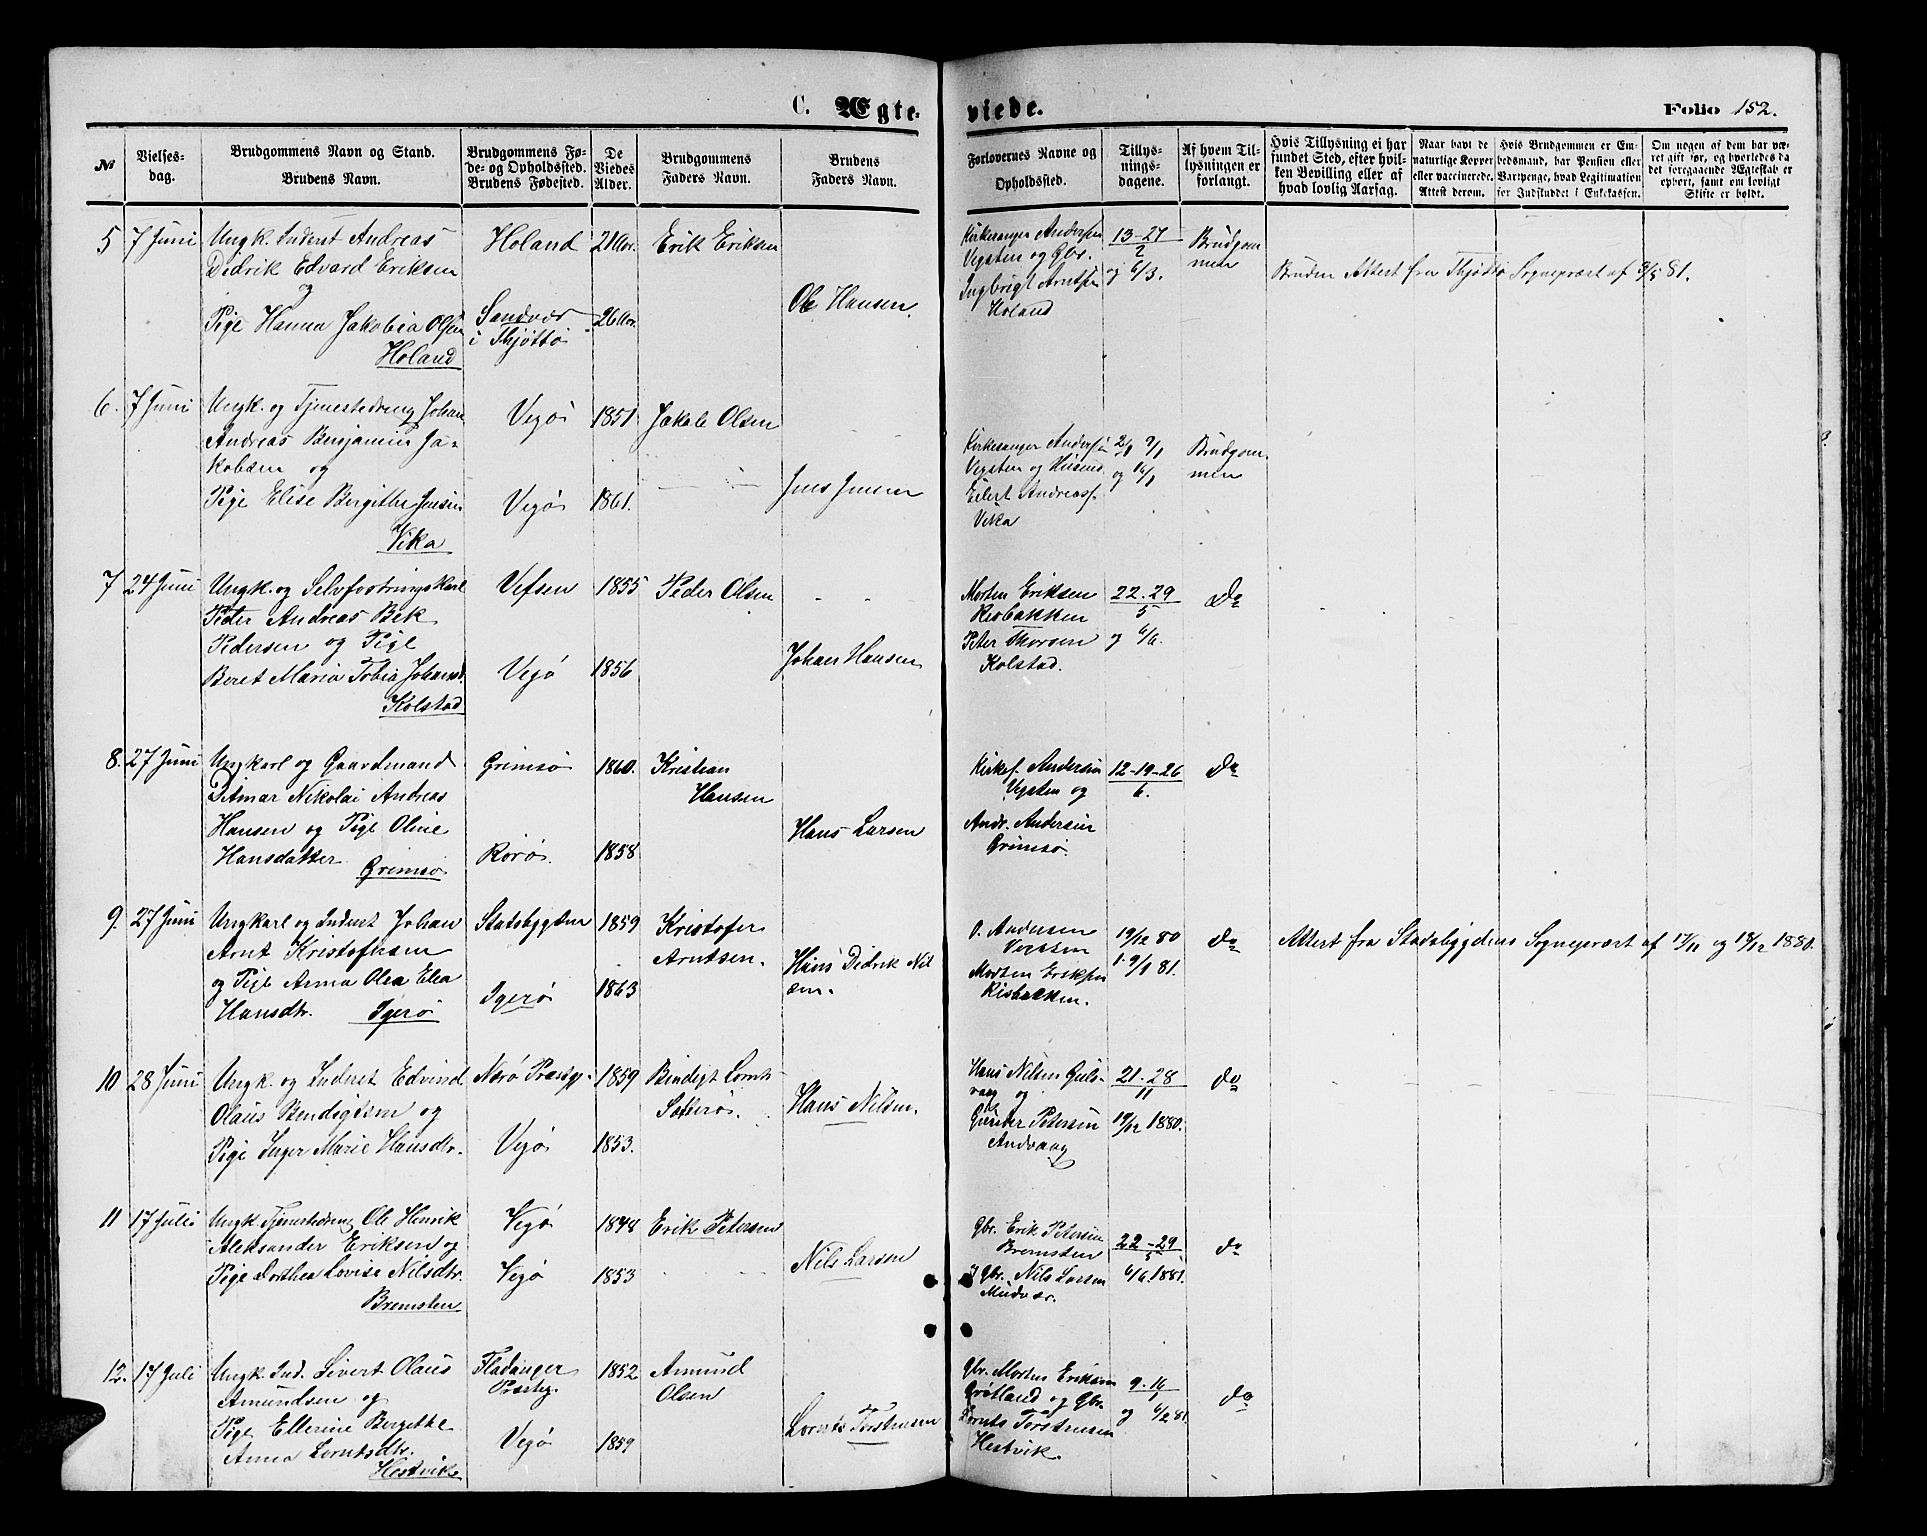 C. Ægte-
viede.
Folio 152.
№
Vielses-
dag.
Brudgommens Navn og Stand.
Brudens Navn.
Brudgommens Fø-
de- og Opholdssted.
Brudens Fødested.
De
Viedes
Alder.
Brudgommens
Faders Navn.
Brudens
Faders Navn.
Forlovernes Navne og
Opholdssted.
Tillys-
nings-
dagene.
Af hvem Til-
lysningen er
forlangt.
Hvis Tillysning ei har
fundet Sted, efter hvil-
ken Bevilling eller af
hvad lovlig Aarsag.
Naar havt de
naturlige Kopper
eller vaccinerede.
Attest derom.
Hvis Brudgommen er Em-
bedsmand, har Pension eller
Vartpenge, hvad Legitimation
for Indskuddet i Enkekassen.
Om nogen af dem har væ-
ret gift før, og hvorledes da
det foregaaende Ægteskab er
ophørt, samt om lovligt
Skifte er holdt.
5 7 Juni
Ungk. Inderst Andreas
Didrik Edvard Eriksen
og
Pige Hanna Jakobia Olsen
Holand
Holand
Sandvær
i Thjøttø
21 Aar.
26 Aar.
Erik Eriksen
Ole Hansen.
Kirkesanger Andersen
Vegsten og Gbr.
Ingbrigt Arntsen
Holand
13-27
2
og 6/3.
Brudgom
men
Bruden Attest fra Thjøttø Sognepræst af 9/5 81.
6. 7 Juni
Ungk. og Tjenestedreng Johan
Andreas Benjamin Ja-
kobsen og
Pige Elise Bergithe Jensen
Vika
Vegø
Vegø
1851.
1861.
Jakob Olsen
Jens Jensen
Kirkesanger Andersen
Vegsten og Husmd.
Eilert Andreass.
Vika
2/1 9/1
og 16/1
Brudgom
men
7 24 Juni
Ungk. og Selvfostringskarl
Peter Andreas Bek
Pedersen og Pige
Beret Maria Tobia Johansd.
Kolstad
Vefsen
Vegø
1855
1856
Peder Olsen
Johan Hansen
Morten Eriksen
Risbakken
Peter Thorsen
Kolstad.
22. 29
5
og 6/6.
Do
8. 27 Juni
Ungkarl og Gaardmand
Ditmar Nikolai Andreas
Hansen og Pige Oline
Hansdatter Grimsø
Grimsø
Rørø.
1860.
1858
Kristian
Hansen
Hans Larsen
Kirkes. Andersen
Vegsten og
Andr. Andersen
Grimsø.
12-19-26
6.
do
9. 27 Juni
Ungkarl og Inderst Johan
Arnt Kristofersen
og Pige Anna Olea Elea
Hansdtr. Igerø
Stadsbygden
Igerø
1859
1863
Kristofer
Arntsen.
Hans Didrik Nil
sen.
O. Andersen
Vegsten
Morten Eriksen
Risbakken.
19/12 80
9/1 81.
do
Attest fra Stadsbygdens Sognepræst af 17/11 og 18/12 1880.
10 28 Juni
Ungk. og Inderst Edvind
Olaus Bendigtsen og
Pige Inger Marie Hansdtr.
Nærø Præstgj.
Vegø
1859
1853.
Bendigt Lornts
Sætterø.
Hans Nilsen.
Hans Nilsen Guls-
vaag og
Gunder Petersen
Andvaag
21. 28
11
19/12 1880.
do
11 17 Juli
Ungk. Tjenestedreng Ole Henrik
Aleksander Eriksen og
Pige Dorthea Lovise Nilsdtr.
Bremsten
Vegø
Vegø
1848
1853
Erik Petersen
Nils Larsen
Gbr. Erik Petersen
Bremsten
Gbr. Nils Larsen
Mudvær.
22-29
5
6/6.1881.
do
12. 17 Juli
Ungk. Ind. Sivert Olaus
Amundsen og
Pige Ellerine Bergitte
Anna Lorntsdtr.
Hestvik
Fladanger
Præstg.
Vegø
1852
1859
Amund
Olsen
Lornts Torstensen
Gbr. Morten Eriksen
Grøtland og Gbr.
Lornts Torstensen
Hestvik.
9. 16
1
og 6/2 81.
do